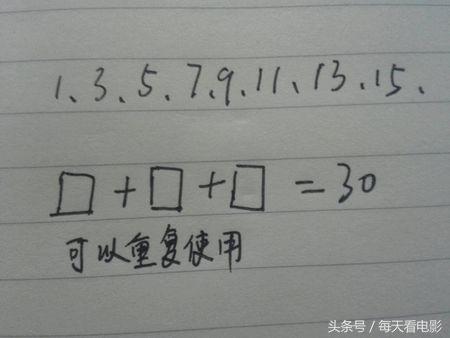 1、3、5、7、9、11、13、15、
□+□+□=30
可以重复使用
头条号/每天看电影